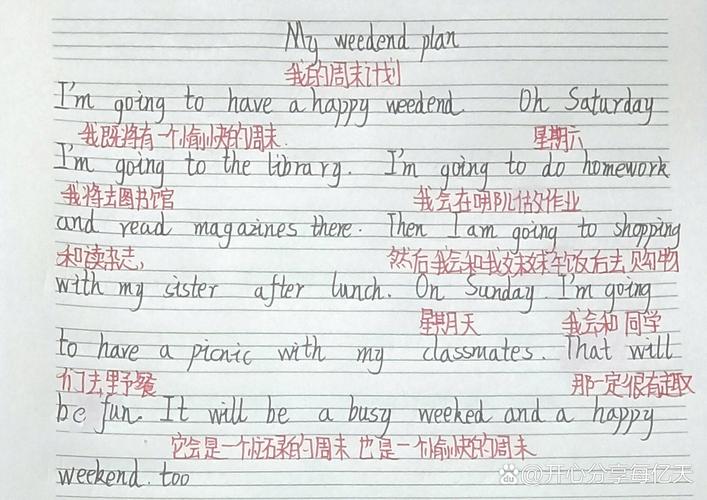 My weedend plan
我的周末计划
I'm going to have a happy weedend. Oh Saturday
我既将有一个愉快的周末. 星期六
I'm going to the library. I'm going to do homework
我将去图书馆 我会在哪儿做作业
and read magazines there. Then I am going to shopping
和读杂志, 然后我会和我妹妹午饭后去购物
with my sister after lunch. On Sunday. I'm going
星期天 我会和同学
to have a picnic with my classmates. That will
们去野餐 那一定很有趣
be fun. It will be a busy weeked and a happy
它会是一个忙碌的周末 也是一个愉快的周末
weekend. too
Baidu@开心分享每亿天